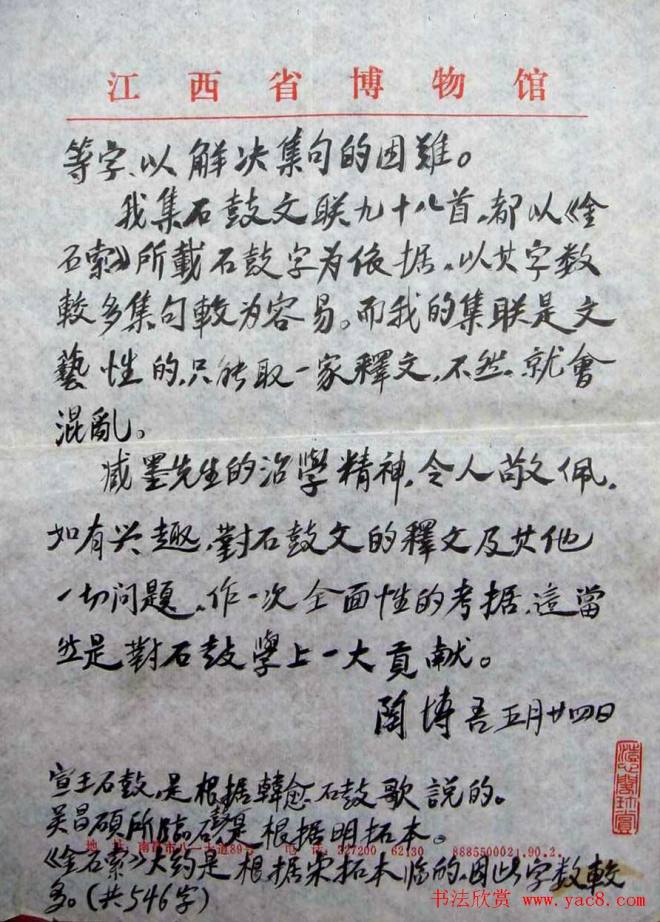 江西省博物馆
等字、以解决集句的困難。
我集石鼓文联九十八首，都以《金
石索》所載石鼓字为依据，以其字数
較多集句較为容易。而我的集联是文
藝性的，只能取一家釋文，不然，就會
混亂。
臧墨先生的治學精神，令人敬佩，
如有兴趣，對石鼓文的釋文及其他
一切问題，作一次全面性的考据，這當
然是對石鼓學上一大貢献。
陶博吾五月廿四日
宣王石鼓，是根据韓愈石鼓歌說的。
吴昌碩所临石鼓是根据明拓本。
地址：南昌市八一大道89号 电话：327200 62130 8885500021.90.2.
《金石索》大約是根据宋拓本临的，因此字数較
多。（共546字）
书法欣赏 www.yac8.com